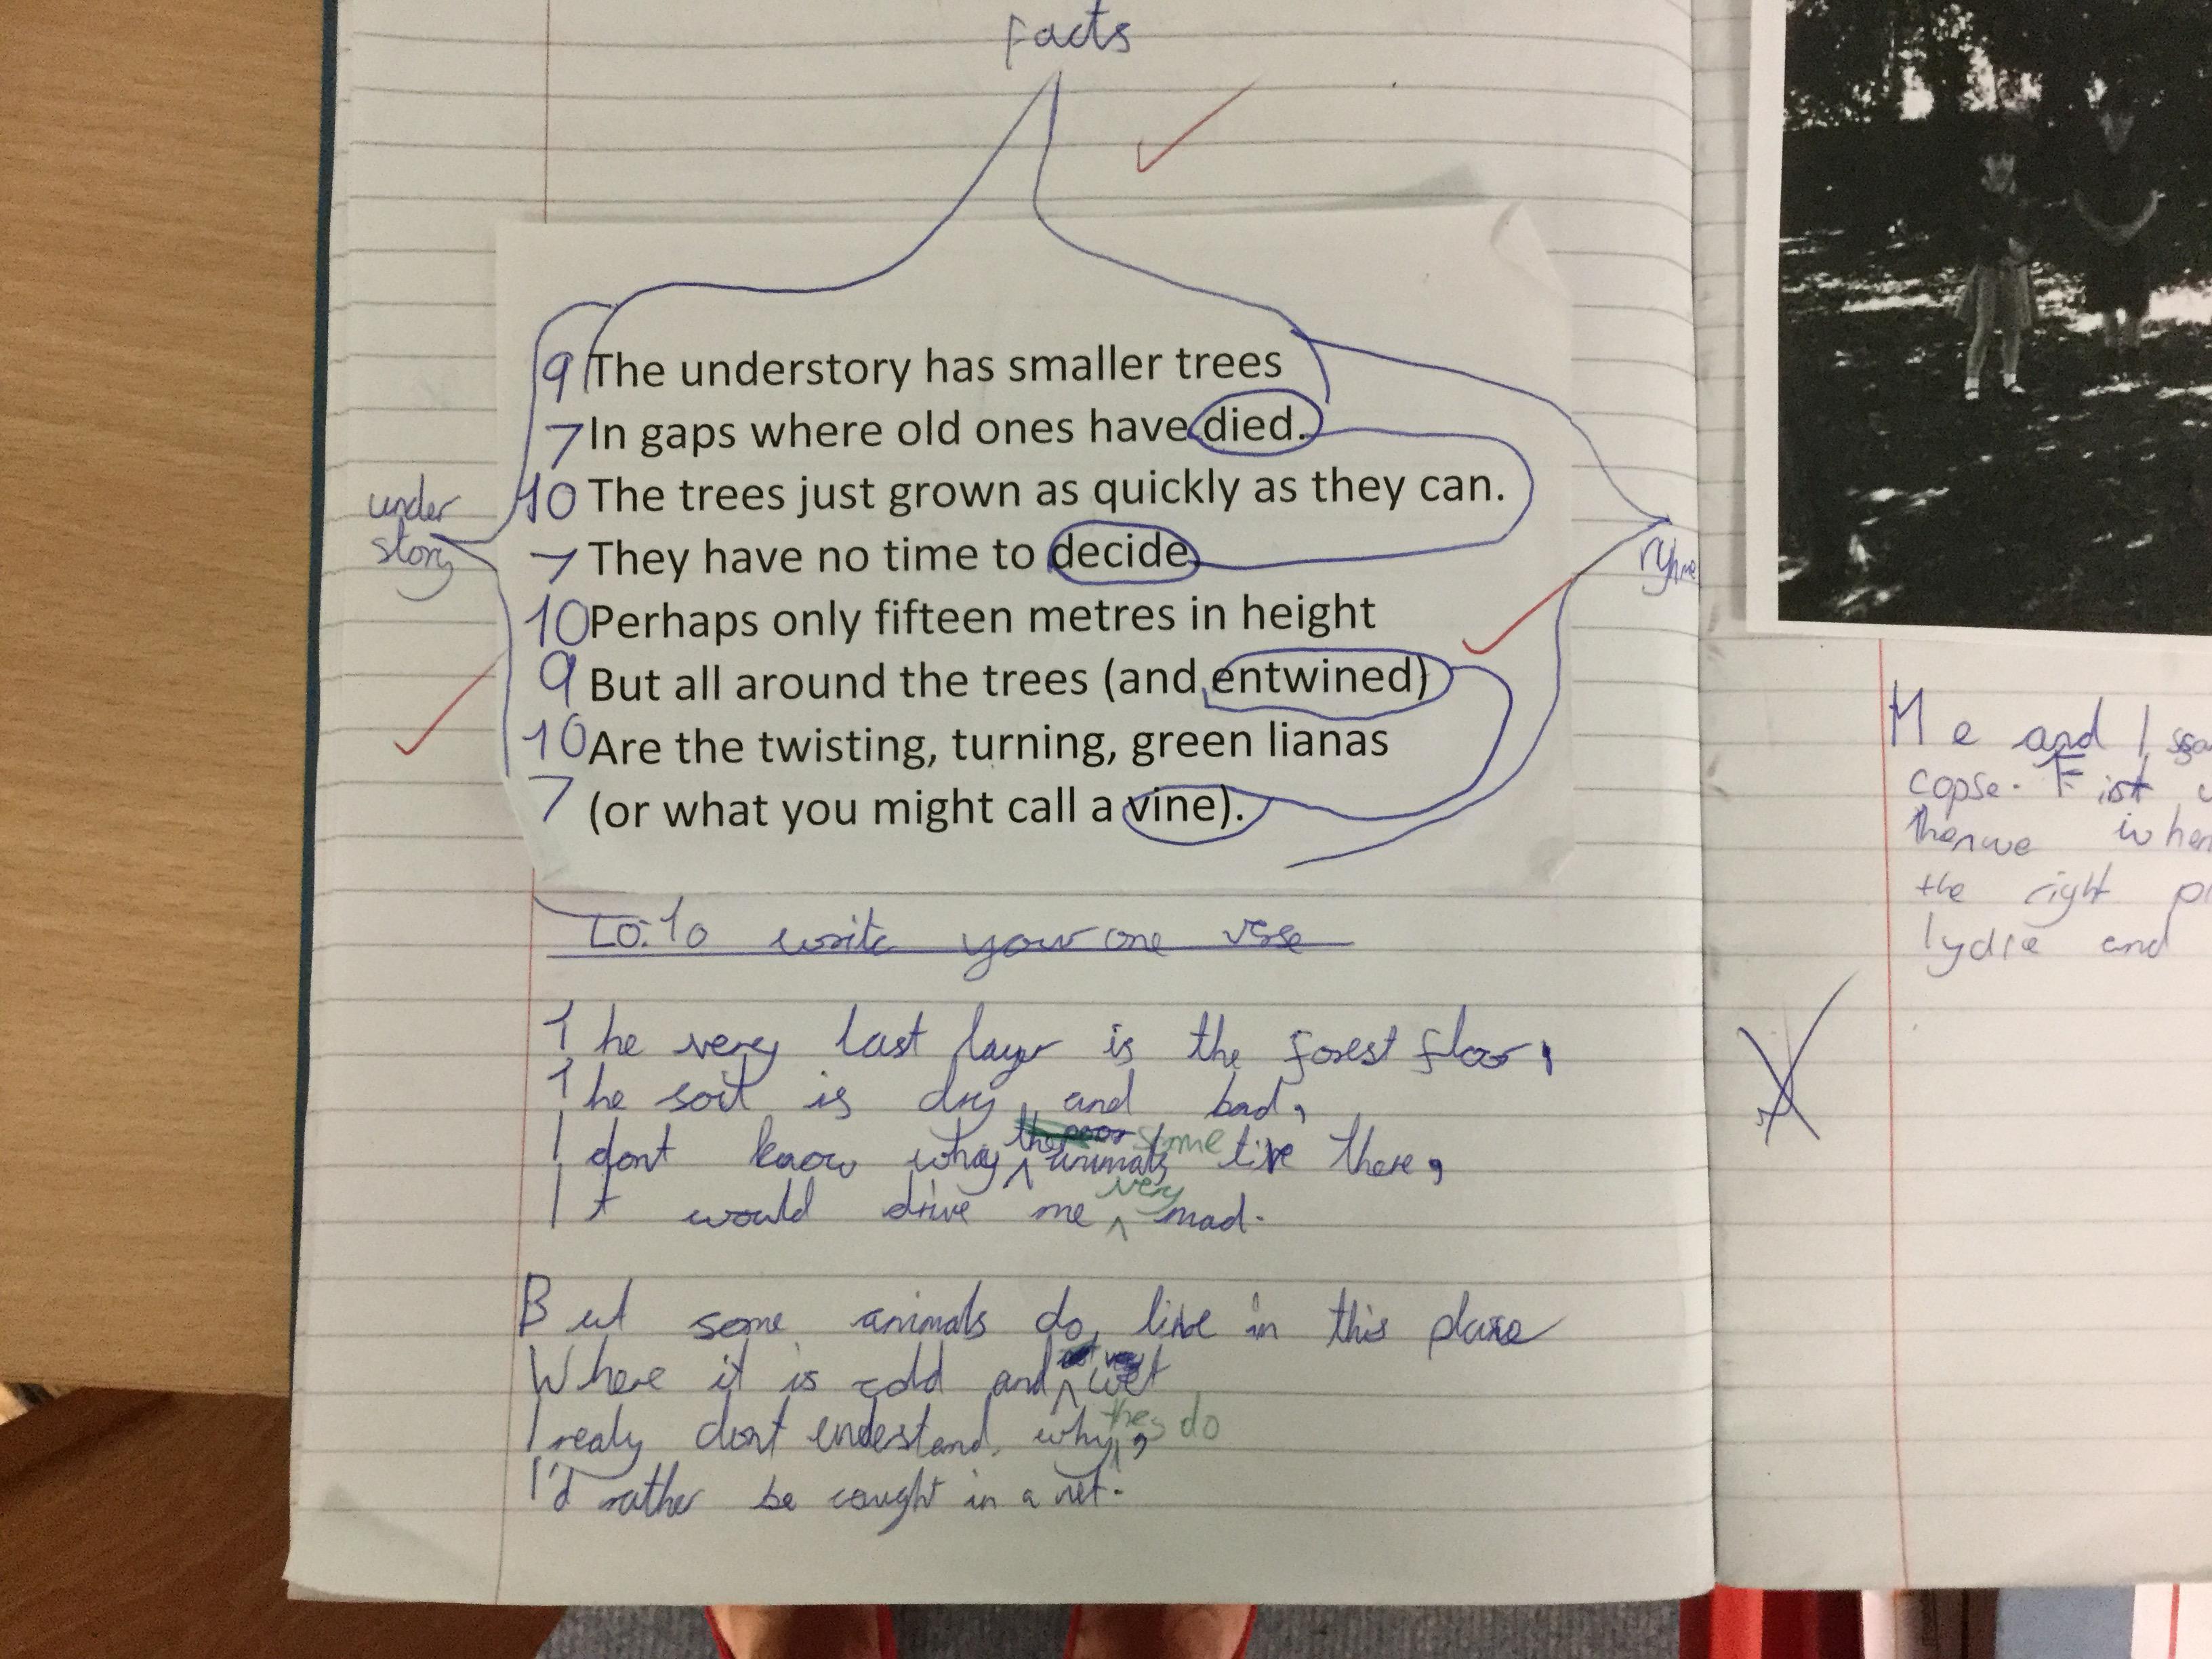 Facts
9 The understory has smaller trees
7 In gaps where old ones have died.
10 The trees just grown as quickly as they can.
7 They have no time to decide
10 Perhaps only fifteen metres in height
9 But all around the trees (and entwined)
10 Are the twisting, turning, green lianas
7 (or what you might call a vine).
under
story
ryhme
LO: To write your one verse
The very last layer is the forest floor,
The soil is dry and bad,
I dont know why some animals live there,
It would drive me very mad.
But some animals do live in this place
Where it is cold and wet
I realy dont understand why they do,
I'd rather be caught in a net.
Me and I
copse. First
then we when
the right
lydia and